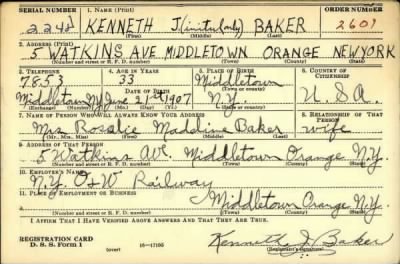 SERIAL NUMBER 1. NAME (Print) ORDER NUMBER
2242 KENNETH J (initial only) BAKER 2601
(First) (Middle) (Last)
2. ADDRESS (Print)
5 WATKINS AVE MIDDLETOWN ORANGE NEW YORK
(Number and street or R. F. D. number) (Town) (County) (State)
3. TELEPHONE 4. AGE IN YEARS 5. PLACE OF BIRTH 6. COUNTRY OF CITIZENSHIP
7853 33 Middletown
DATE OF BIRTH (Town or county)
Middletown NY June 21st 1907 N.Y. U.S.A.
(Exchange) (Number) (Mo.) (Day) (Yr.) (State or country)
7. NAME OF PERSON WHO WILL ALWAYS KNOW YOUR ADDRESS 8. RELATIONSHIP OF THAT PERSON
Mrs Rosalie Madaline Baker wife
(Mr., Mrs., Miss) (First) (Middle) (Last)
9. ADDRESS OF THAT PERSON
5 Watkins Ave Middletown Orange N.Y.
(Number and street or R. F. D. number) (Town) (County) (State)
10. EMPLOYER'S NAME
N.Y. O&W Railway
11. PLACE OF EMPLOYMENT OR BUSINESS
Middletown Orange N.Y.
(Number and street or R. F. D. number) (Town) (County) (State)
I AFFIRM THAT I HAVE VERIFIED ABOVE ANSWERS AND THAT THEY ARE TRUE.
REGISTRATION CARD
D. S. S. Form 1 (over) 16—17105 Kenneth J. Baker
(Registrant's signature)